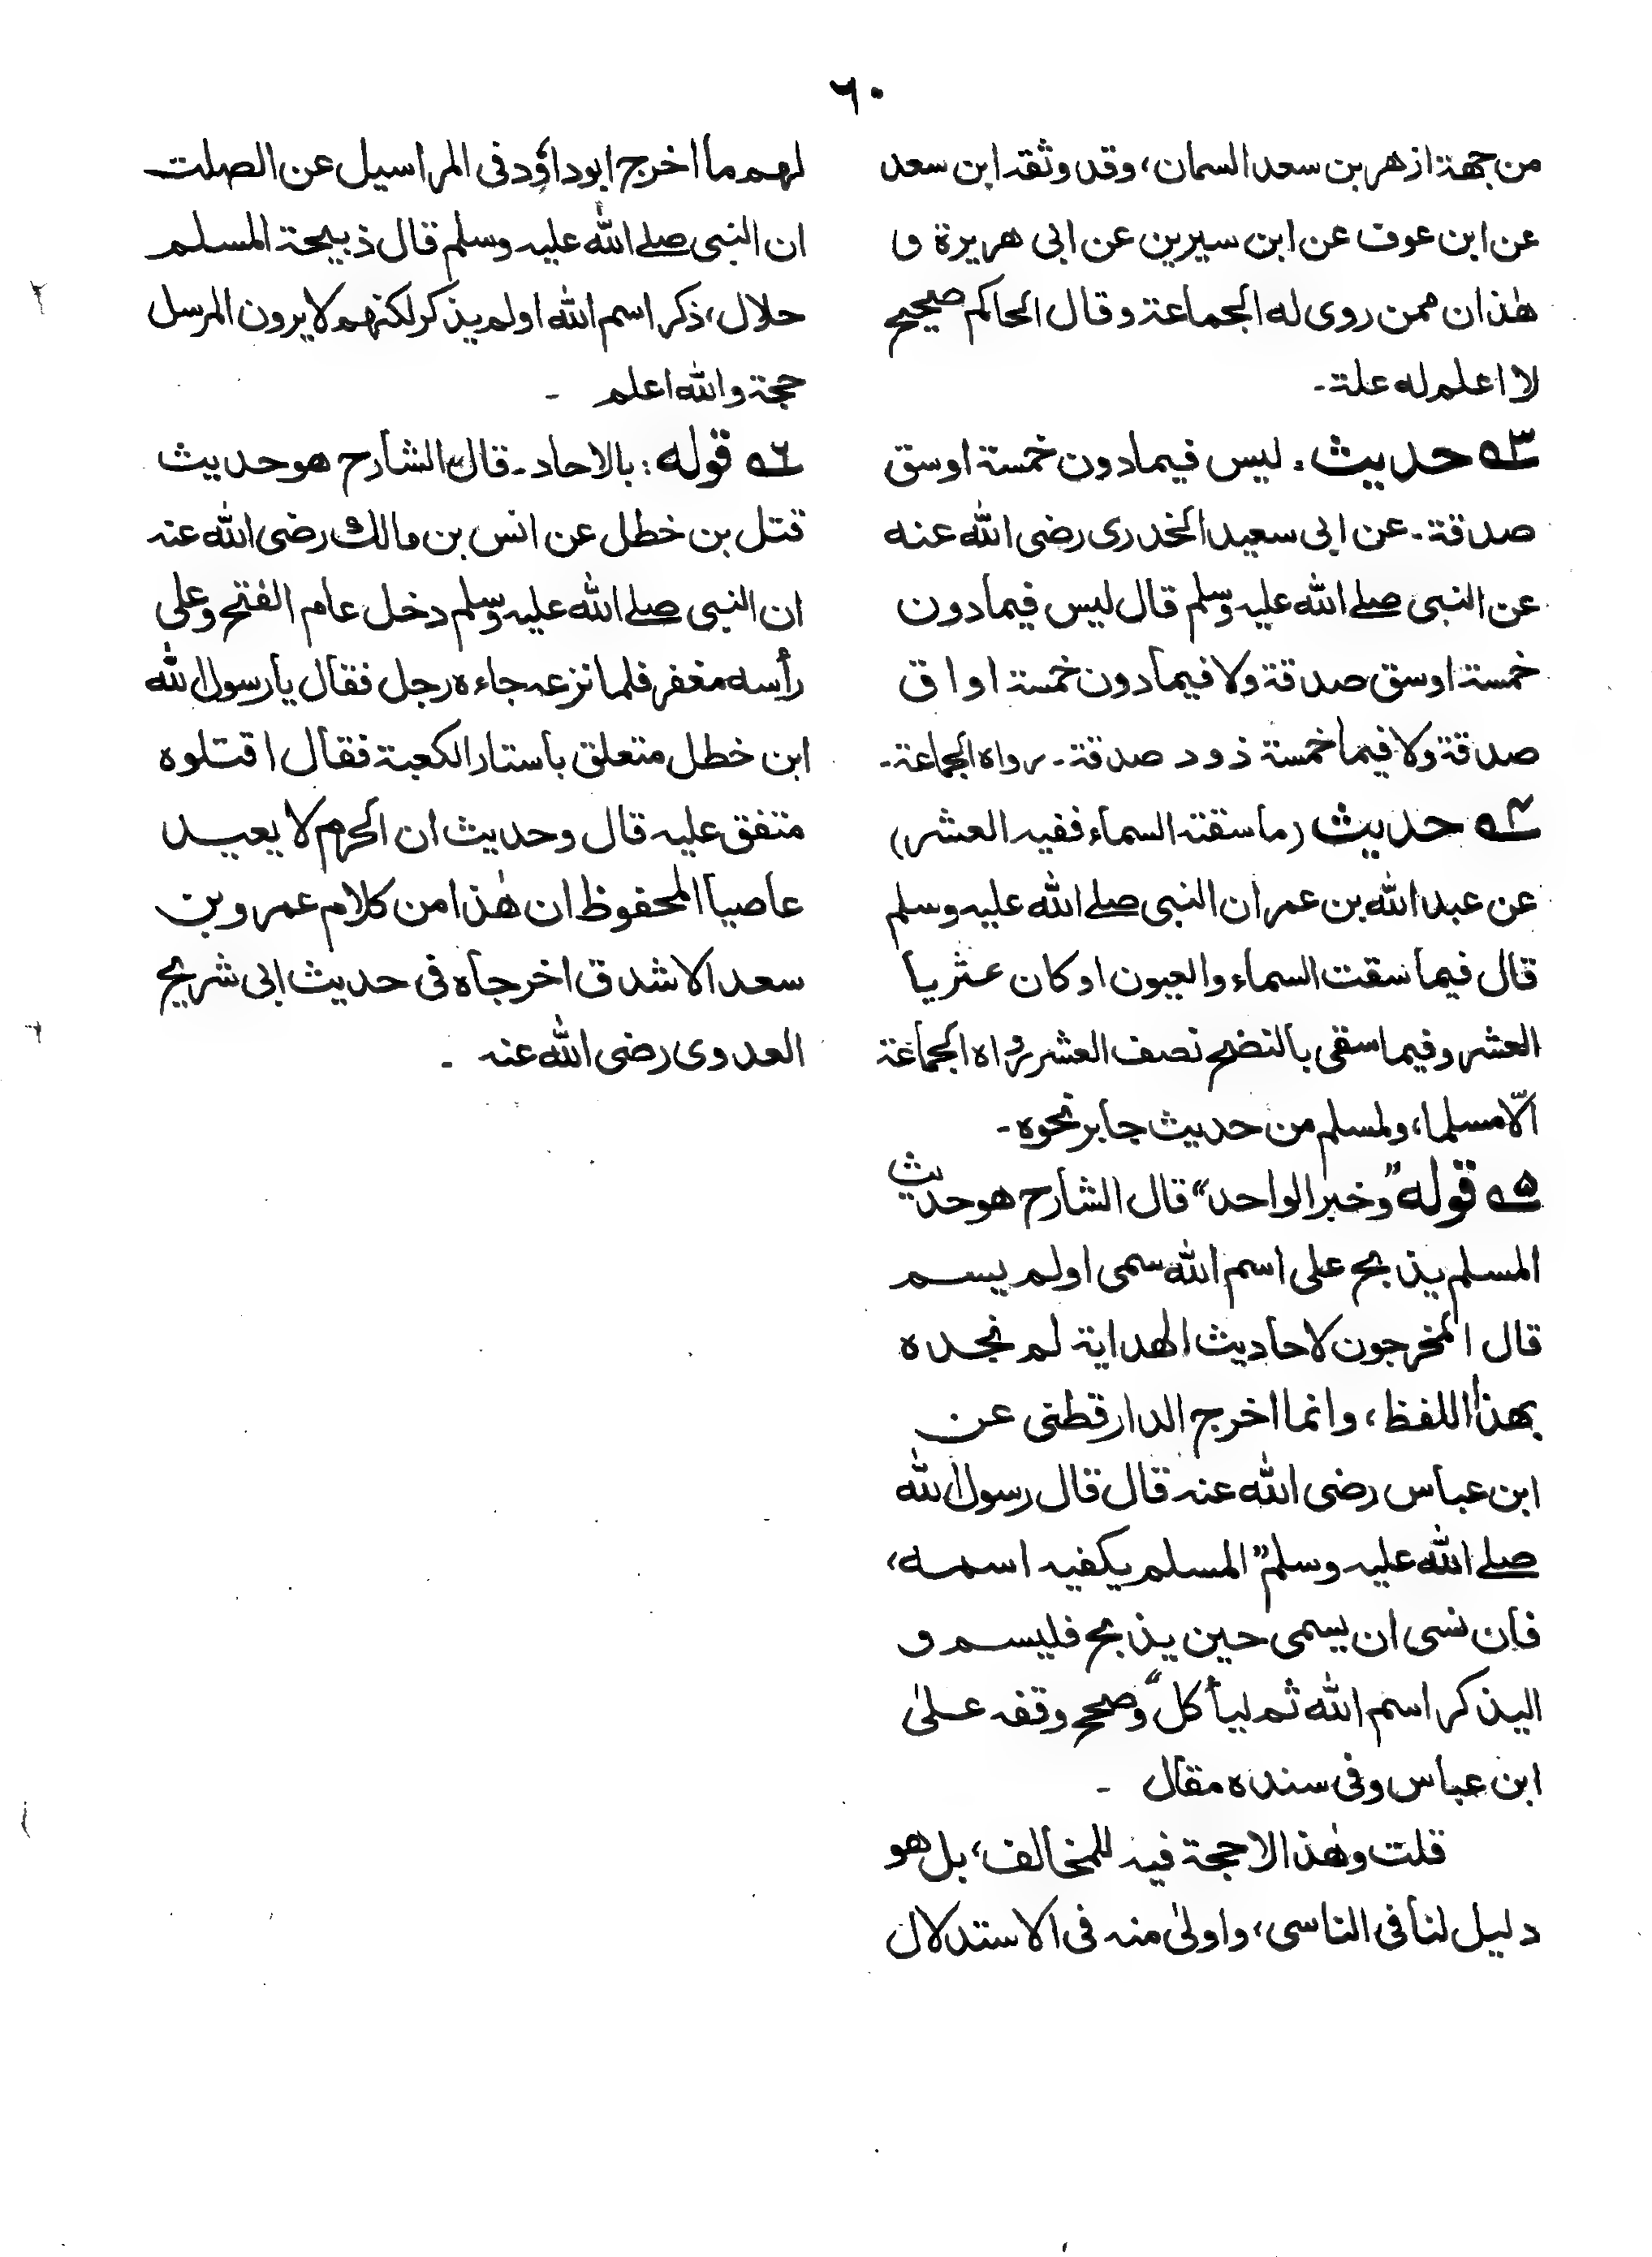 ٦٠
من جهة ازهر بن سعد السمان، وقد وثقه ابن سعد
عن ابن عوف عن ابن سيرين عن ابى هريرة و
هٰذان ممن روى له الجماعة وقال الحاكم صحيح
لا اعلم له علة۔
ـ٥٣ حديث: ليس فيما دون خمسة اوسق
صدقة۔ عن ابى سعيد الخدرى رضى الله عنه
عن النبى صلے الله عليه وسلم قال ليس فيما دون
خمسة اوسق صدقة ولا فيما دون خمسة اواق
صدقة ولا فيما خمسة ذود صدقة۔ رواه الجماعة۔
ـ٥٤ حديث (ما سقته السماء ففيه العشر)
عن عبد الله بن عمر ان النبى صلے الله عليه وسلم
قال فيما سقت السماء والعيون او كان عثريا
العشر وفيما سقى بالنضح نصف العشر رواه الجماعة
الّا مسلما، ولمسلم من حديث جابر نحوه۔
ـ٥٥ قوله "وخبر الواحد" قال الشارح هو حديث
المسلم يذبح على اسم الله سمى اولم يسم
قال المخرجون لاحاديث الهداية لم نجده
بهذا اللفظ، وانما اخرج الدارقطنى عن
ابن عباس رضى الله عنه قال قال رسول الله
صلے الله عليه وسلم "المسلم يكفيه اسمه،
فان نسى ان يسمى حين يذبح فليسم و
اليذكر اسم الله ثم ليأكل" وصحح وقفه علىٰ
ابن عباس وفى سنده مقال ۔
قلت وهٰذا لاحجة فيه للمخالف، بل هو
دليل لنا فى الناسى، واولىٰ منه فى الاستدلال
لهم ما اخرج ابوداؤد فى المراسيل عن الصلت
ان النبى صلے الله عليه وسلم قال ذبيحة المسلم
حلال، ذكر اسم الله اولم يذكر لكنهم لا يرون المرسل
حجة والله اعلم ۔
ـ٥٦ قوله: بالاحاد۔ قال الشارح هو حديث
قتل بن خطل عن انس بن مالك رضى الله عنه
ان النبى صلے الله عليه وسلم دخل عام الفتح وعلى
رأسه مغفر فلما نزعه جاءه رجل فقال يا رسول الله
ابن خطل متعلق باستار الكعبة فقال اقتلوه
متفق عليه قال وحديث ان الحرم لا يعيد
عاصيا المحفوظ ان هٰذا من كلام عمرو بن
سعد الاشدق اخرجاه فى حديث ابى شريح
العدوى رضى الله عنه ۔